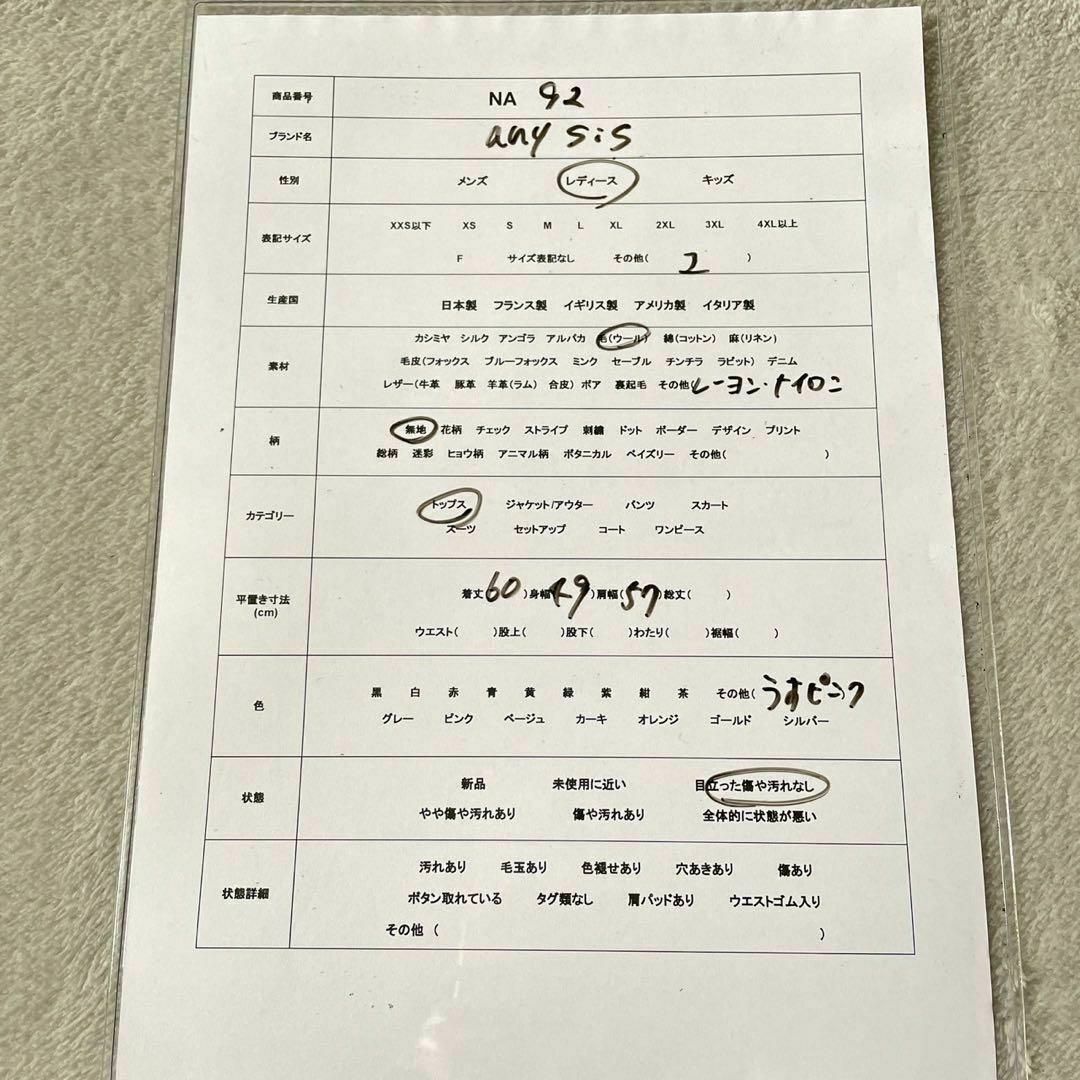 商品番号 NA 92
ブランド名 any sis
性別 メンズ レディース キッズ
XXS以下 XS S M L XL 2XL 3XL 4XL以上
表記サイズ
F サイズ表記なし その他( 2 )
生産国 日本製 フランス製 イギリス製 アメリカ製 イタリア製
カシミヤ シルク アンゴラ アルパカ 毛(ウール) 綿(コットン) 麻(リネン)
素材 毛皮(フォックス ブルーフォックス ミンク セーブル チンチラ ラビット) デニム
レザー(牛革 豚革 羊革(ラム) 合皮) ボア 裏起毛 その他(レーヨン・ナイロン
無地 花柄 チェック ストライプ 刺繍 ドット ボーダー デザイン プリント
柄
総柄 迷彩 ヒョウ柄 アニマル柄 ボタニカル ペイズリー その他( )
トップス ジャケット/アウター パンツ スカート
カテゴリー
スーツ セットアップ コート ワンピース
平置き寸法 着丈60)身幅(49)肩幅(57)総丈( )
(cm)
ウエスト( )股上( )股下( )わたり( )裾幅( )
黒 白 赤 青 黄 緑 紫 紺 茶 その他(うすピンク)
色
グレー ピンク ベージュ カーキ オレンジ ゴールド シルバー
新品 未使用に近い 目立った傷や汚れなし
状態
やや傷や汚れあり 傷や汚れあり 全体的に状態が悪い
汚れあり 毛玉あり 色褪せあり 穴あきあり 傷あり
状態詳細 ボタン取れている タグ類なし 肩パッドあり ウエストゴム入り
その他 ( )